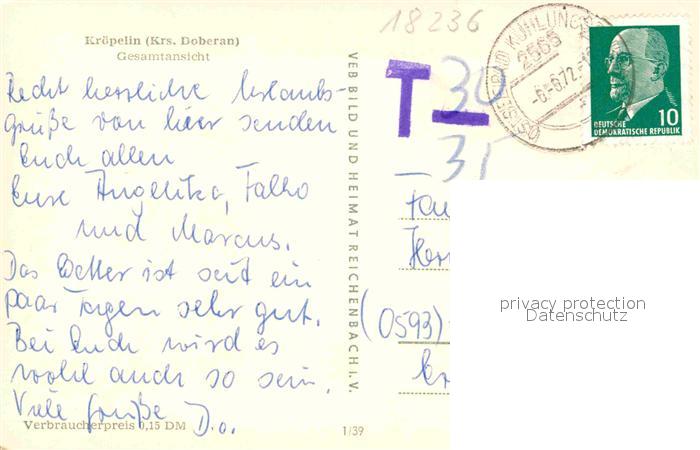 18236
Kröpelin (Krs. Doberan)
Gesamtansicht
Recht herzliche Urlaubs-
grüße von hier senden
Euch allen
Eure Angelika, Falko
und Marcus.
Das Wetter ist seit ein
paar Tagen sehr gut.
Bei Euch wird es
wohl auch so sein.
Viele Grüße D.o.
Verbraucherpreis 0,15 DM
VEB BILD UND HEIMAT REICHENBACH i. V.
1/39
T 30
35
OSTSEEBAD KÜHLUNGS
2565
-6-6.72-
10
DEUTSCHE
DEMOKRATISCHE REPUBLIK
Fam
Her
(0593)
privacy protection
Datenschutz